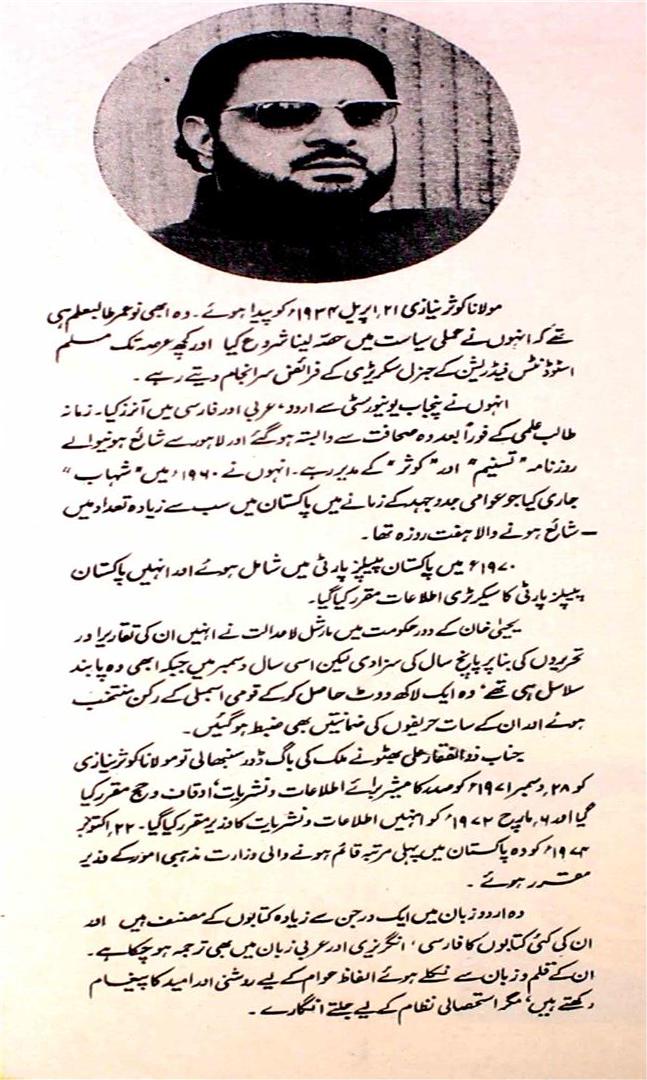 مولانا کوثر نیازی ۲۱؍ اپریل ۱۹۳۴ء کو پیدا ہوئے۔ وہ ابھی نو عمر طالبعلم ہی
تھے کہ انہوں نے عملی سیاست میں حصّہ لینا شروع کیا اور کچھ عرصہ تک مسلم
اسٹوڈنٹس فیڈریشن کے جنرل سکریڑی کے فرائض سرانجام دیتے رہے۔
انہوں نے پنجاب یونیورسٹی سے اردو، عربی اور فارسی میں آنرز کیا۔ زمانہ
طالب علمی کے فوراً بعد وہ صحافت سے وابستہ ہو گئے اور لاہور سے شائع ہونیوالے
روزنامہ "تسنیم" اور "کوثر" کے مدیر رہے۔ انہوں نے ۱۹۶۰ء میں "شہاب"
جاری کیا جو عوامی جدوجہد کے زمانے میں پاکستان میں سب سے زیادہ تعداد میں
شائع ہونے والا ہفت روزہ تھا۔
۱۹۷۰ء میں پاکستان پیپلز پارٹی میں شامل ہوئے اور انہیں پاکستان
پیپلز پارٹی کا سیکرٹری اطلاعات مقرر کیا گیا۔
یحییٰ خان کے دور حکومت میں مارشل لا عدالت نے انہیں ان کی تقاریر اور
تحریروں کی بنا پر پانچ سال کی سزا دی لیکن اسی سال دسمبر میں جبکہ ابھی وہ پابند
سلاسل ہی تھے، وہ ایک لاکھ ووٹ حاصل کر کے قومی اسمبلی کے رکن منتخب
ہوئے اور ان کے سات حریفوں کی ضمانتیں بھی ضبط ہو گئیں۔
جناب ذوالفقار علی بھٹو نے ملک کی باگ ڈور سنبھالی تو مولانا کوثر نیازی
کو ۲۸؍ دسمبر ۱۹۷۱ء کو صدر کا مشیر برائے اطلاعات و نشریات، اوقاف و حج مقرر کیا
گیا اور ۶؍ مارچ ۱۹۷۲ء کو انہیں اطلاعات و نشریات کا وزیر مقرر کیا گیا۔ ۲۲؍ اکتوبر
۱۹۷۴ء کو وہ پاکستان میں پہلی مرتبہ قائم ہونے والی وزارت مذہبی امور کے وزیر
مقرر ہوئے۔
وہ اردو زبان میں ایک درجن سے زیادہ کتابوں کے مصنف ہیں اور
ان کی کئی کتابوں کا فارسی، انگریزی اور عربی زبان میں بھی ترجمہ ہو چکا ہے۔
ان کے قلم و زبان سے نکلے ہوئے الفاظ عوام کے لیے روشنی اور امید کا پیغام
رکھتے ہیں، مگر استحصالی نظام کے لیے جلتے انگارے۔